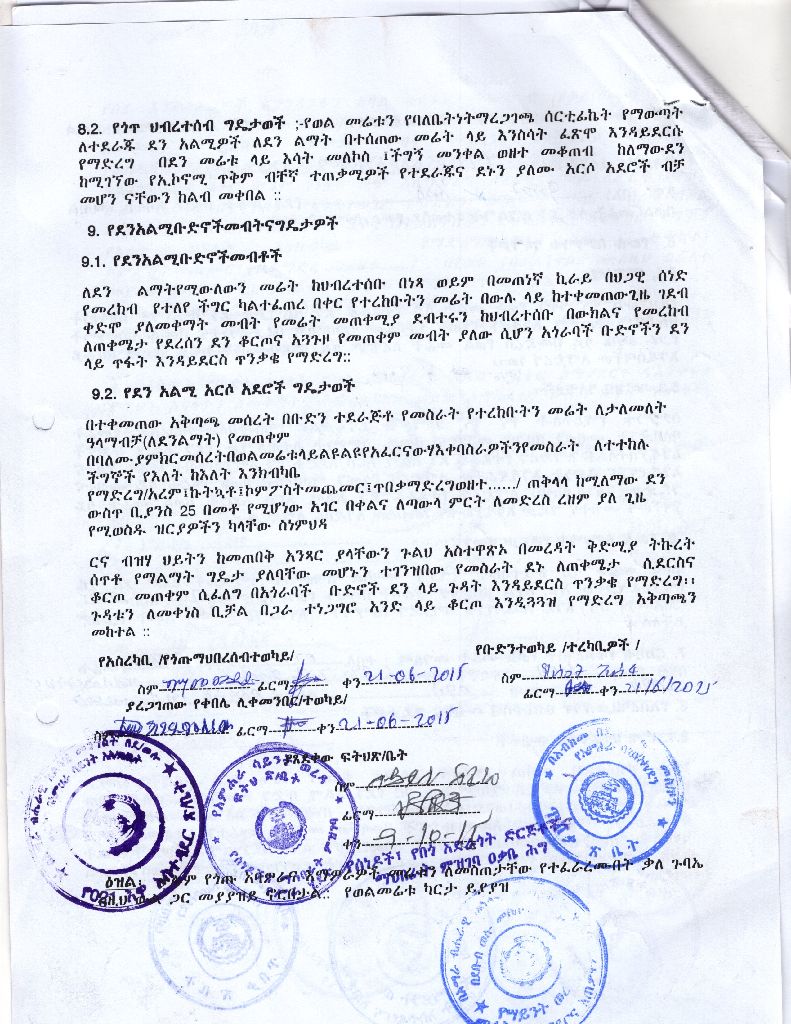 8.2. የጎጥ ህብረተሰብ ግዴታወች ;-የወል መሬቱን የባለቤትነትማረጋገጫ ሰርቲፊኬት የማውጣት
ለተደራጁ ደን አልሚዎች ለደን ልማት በተሰጠው መሬት ላይ እንስሳት ፈጽሞ እንዳይደርሱ
የማድረግ በደን መሬቱ ላይ እሳት መለኮስ ፤ችግኝ መንቀል ወዘተ መቆጠብ ከለማውደን
ከሚገኘው የኢኮኖሚ ጥቅም ብቸኛ ተጠቃሚዎች የተደራጁና ደኑን ያለሙ አርሶ አደሮች ብቻ
መሆን ናቸውን ከልብ መቀበል ::
9. የደንአልሚቡድኖችመብትናግዴታዎች
9.1. የደንአልሚቡድኖችመብቶች
ለደን ልማትየሚውለውን መሬት ከህብረተሰቡ በነጻ ወይም በመጠነኛ ኪራይ በህጋዊ ሰነድ
የመረከብ የተለየ ችግር ካልተፈጠረ በቀር የተረከቡትን መሬት በውሉ ላይ ከተቀመጠውጊዜ ገደብ
ቀድሞ ያለመቀማት መብት የመሬት መጠቀሚያ ደብተሩን ከህብረተሰቡ በውክልና የመረከብ
ለጠቀሜታ የደረሰን ደን ቆርጦና አጓጉዞ የመጠቀም መብት ያለው ሲሆን አጎራባች ቡድኖችን ደን
ላይ ጥፋት እንዳይደርስ ጥንቃቄ የማድረግ::
9.2. የደን አልሚ አርሶ አደሮች ግዴታወች
በተቀመጠው አቅጣጫ መሰረት በቡድን ተደራጅቶ የመስራት የተረከቡትን መሬት ለታለመለት
ዓላማብቻ(ለደንልማት) የመጠቀም
በባለሙያምክርመሰረትበወልመሬቱላይልዩልዩየአፈርናውሃእቀባስራዎችንየመስራት ለተተከሉ
ችግኞች የእለት ከእለት እንክብካቤ
የማድረግ/አረም፤ኩትኳቶ፤ኮምፖስትመጨመር፤ጥበቃማድረግወዘተ....../ ጠቅላላ ከሚለማው ደን
ውስጥ ቢያንስ 25 በመቶ የሚሆነው አገር በቀልና ለጣውላ ምርት ለመድረስ ረዘም ያለ ጊዜ
የሚወስዱ ዝርያዎችን ካላቸው ስነምህዳ
ርና ብዝሃ ህይትን ከመጠበቅ አንጻር ያላቸውን ጉልህ አስተዋጽኦ በመረዳት ቅድሚያ ትኩረት
ሰጥቶ የማልማት ግዴታ ያለባቸው መሆኑን ተገንዝበው የመስራት ደኑ ለጠቀሜታ ሲደርስና
ቆርጦ መጠቀም ሲፈለግ በአጎራባች ቡድኖች ደን ላይ ጉዳት እንዳይደርስ ጥንቃቄ የማድረግ፡፡
ጉዳቱን ለመቀነስ ቢቻል በጋራ ተነጋግሮ አንድ ላይ ቆርጦ እንዲጓጓዝ የማድረግ አቅጣጫን
መከተል ::
የአስረካቢ /የጎጡማህበረሰብተወካይ/
የቡድንተወካይ /ተረካቢዎች /
ስም ፊርማ ቀን 21-06-2015
ስም
ፊርማ ቀን 21/6/2015
ያረጋገጠው የቀበሌ ሊቀመንበር/ተወካይ/
ስም ፊርማ ቀን 21-06-2015
ያጸደቀው ፍትህጽ/ቤት
ስም
ፊርማ
ቀን 9-10-15
የሰነዶች፣ የበጎ አድራጎት ድርጅቶችና
ማህበራት ምዝገባ ዐቃቤ ሕግ
ዕዝል: የጎጡ መሬቱን ለመስጠታቸው የተፈራረሙበት ቃለ ጉባኤ
ከዚህ ውል ጋር መያያዝ የወልመሬቱ ካርታ ይያያዝ